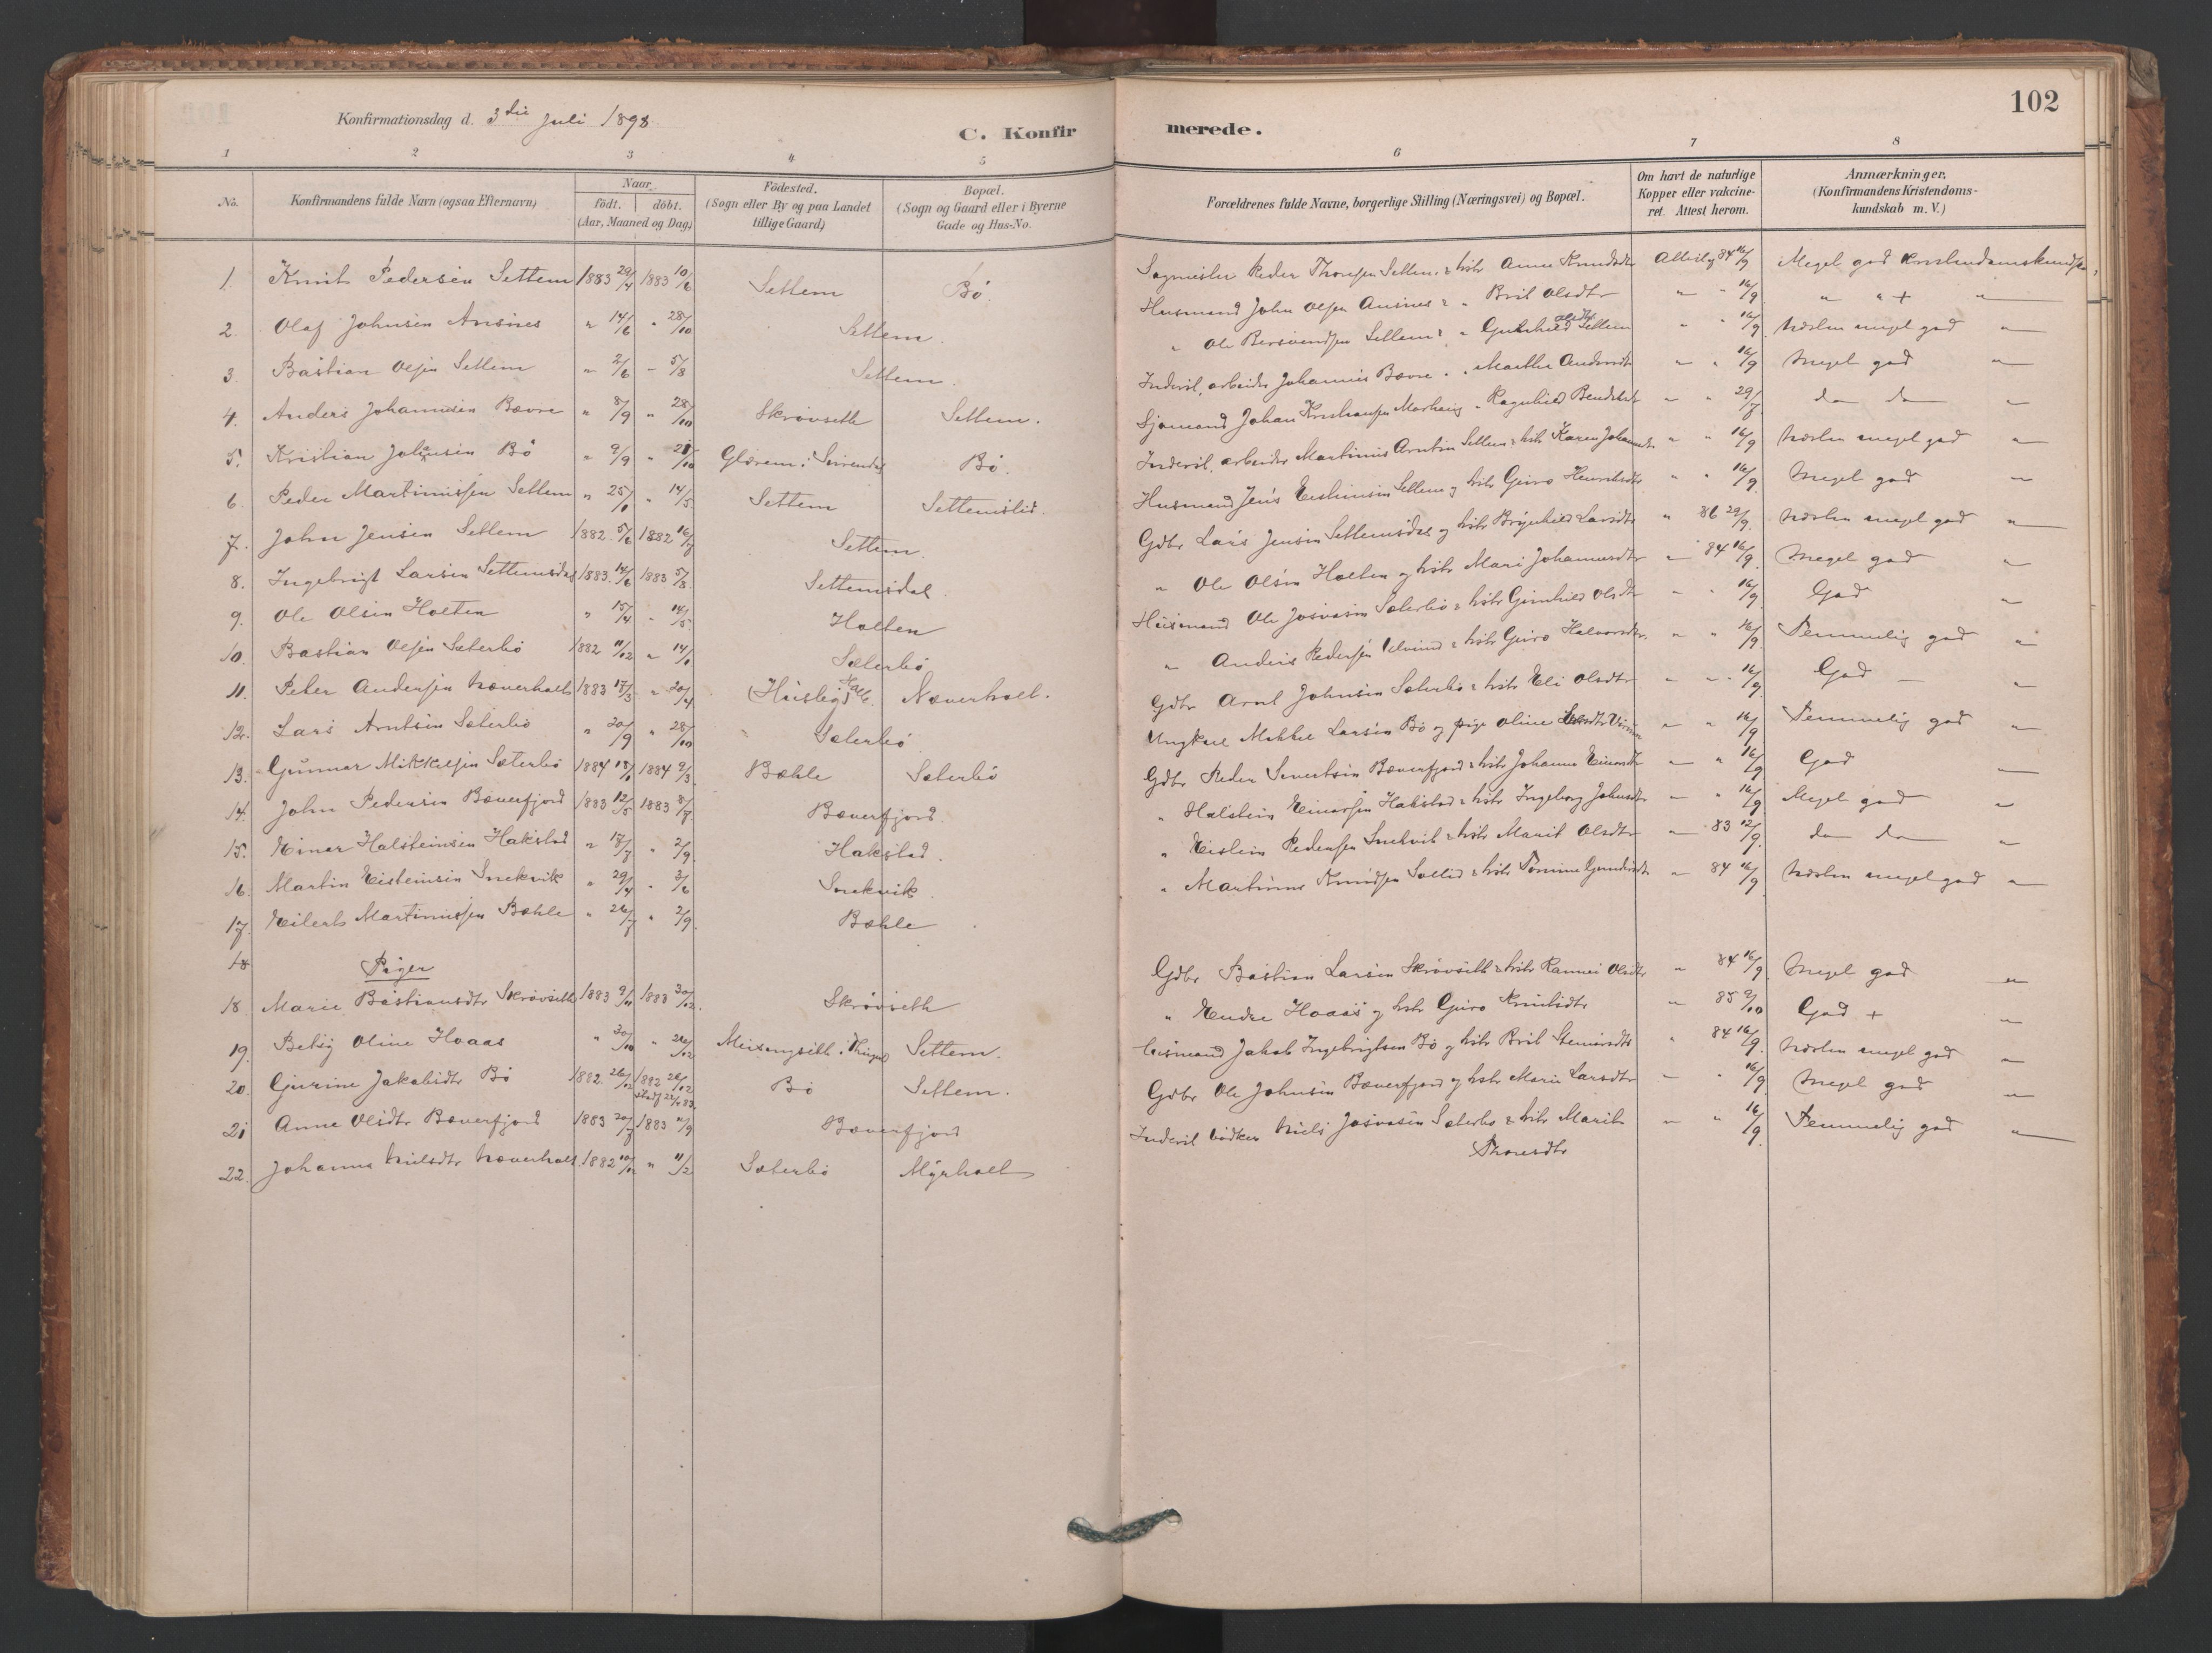 102
Konfirmationsdag d. 3die Juli 1898
C. Konfirmerede.
1 2 3 4 5 6 7 8
No. Konfirmandens fulde Navn (ogsaa Efternavn) Naar födt. döbt. (Aar, Maaned og Dag) Födested. (Sogn eller By og paa Landet tillige Gaard) Bopæl. (Sogn og Gaard eller i Byerne Gade og Hus-No. Forældrenes fulde Navne, borgerlige Stilling (Næringsvei) og Bopæl. Om havt de naturlige Kopper eller vakcineret. Attest herom. Anmærkninger. (Konfirmandens Kristendomskundskab m. V.)
1. Knut Pedersen Settem 1883 29/4 1883 10/6 Settem Bö. Sagmester Peder Thoresen Settem & hstr Anne Knudsdtr Attest 84 16/9 Meget god Kristendomskundsk.
2. Olaf Johnsen Ansnes " 14/6 " 28/10 Settem. Husmand John Olsen Ansnes & " Brit Olsdtr " " 16/9 " " + "
3. Bastian Olsen Settem " 2/6 " 5/8 Settem. " Ole Bersvendsen Settem & " Gunhild Olsdtr Settem " " 16/9 Næsten meget god "
4. Anders Johannesen Bævre " 8/9 " 28/10 Skrövseth Settem. Inderst, arbeider Johannes Bævre " " Marthe Andersdtr " " 16/9 Meget god "
5. Kristian Johansen Bö " 9/9 " 28/10 Glærem i Surendal Bö. Sjömand Johan Kristiansen " Ragnhild " " 29/7 do do "
6. Peder Martinussen Settem " 25/1 " 14/5 Settem Settemslid. Inderst, arbeider Martinus Arntsen Settem & hstr Karen " " 16/9 Næsten meget god "
7. John Jensen Settem 1882 5/6 1882 16/7 Settem. Husmand Jens Eisteinsen Settem og hstr Guro Henriksdtr " " 16/9 Meget god "
8. Ingebrigt Larsen Settemsdal 1883 14/6 1883 5/8 Settemsdal. Gdbr Lars Jensen Settemsdal og hstr Brynhild Larsdtr " 86 29/9 Næsten meget god "
9. Ole Olsen Holten " 15/4 " 14/5 Holten " Ole Olsen Holten og hstr Mari Johannesdtr " 84 16/9 Meget god "
10. Bastian Olsen Sæterbö 1882 11/12 " 14/1 Sæterbö Husmand Ole Josvasen Sæterbö & hstr Gunhild Olsdtr " " 16/9 God "
11. Peter Andersen Næverholt 1883 17/3 " 20/4 Næverholt. " Anders Pedersen & hstr Guro Halvorsdtr. " " 16/9 Temmelig god "
12. Lars Arntsen Sæterbö " 20/9 " 28/10 Sæterbö Gdbr Arnt Johnsen Sæterbö & hstr Eli Olsdtr " " 16/9 God "
13. Gunnar Mikkelsen Sæterbö 1884 18/1 1884 9/3 Bæhle Sæterbö Ungkarl Mikkel Larsen Bö og pige Oline " " 16/9 Temmelig god "
14. John Pedersen Bæverfjord 1883 12/5 1883 8/7 Bæverfjord. Gdbr Peder Sivertsen Bæverfjord & hstr Johanne Einarsdtr " " 16/9 God "
15. Einar Halsteinsen Hakstad " 17/7 " 2/9 Hakstad. " Halstein Einarsen Hakstad & hstr Ingeborg Johnsdtr " " 16/9 Meget god "
16. Martin Eisteinsen Snekvik " 29/4 " 3/6 Snekvik. " Eistein Pedersen Snekvik & hstr Marit Olsdtr " 83 12/9 do do "
17. Eilert Martinussen Bæhle " 26/7 " 2/9 Bæhle. " Martinus Knudsen Sollid & hstr " 84 16/9 Næsten meget god "
18 Piger
18. Marie Bastiansdtr Skrövseth 1883 9/11 1883 30/12 Skrövseth Gdbr Bastian Larsen Skrövseth & hstr Olsdtr " 84 16/9 Meget god "
19. Betsy Oline Hoaas " 30/10 " 26/12 Meisingseth i Tingvol Settem. " Endre Hoaas og hstr Guro Knudsdtr " 85 9/10 God + "
20. Gjurine Jakobsdtr Bö 1882 26/12 1882 26/12 Stadf 22/4 83. Bö Settem. Husmand Jakob Ingebrigtsen Bö og hstr Brit " 84 16/9 Næsten meget god "
21 Anne Olsdtr Bæverfjord 1883 20/7 1883 2/9 Bæverfjord Gdbr Ole Johnsen Bæverfjord og hstr Marie Larsdtr " " 16/9 Meget god "
22. Johanna Nielsdtr Næverholt 1882 10/12 " 11/2 Sæterbö Myrholt Inderst bödker Niels Josvasen Sæterbö & hstr Marit Thoresdtr " " 16/9 Temmelig god "